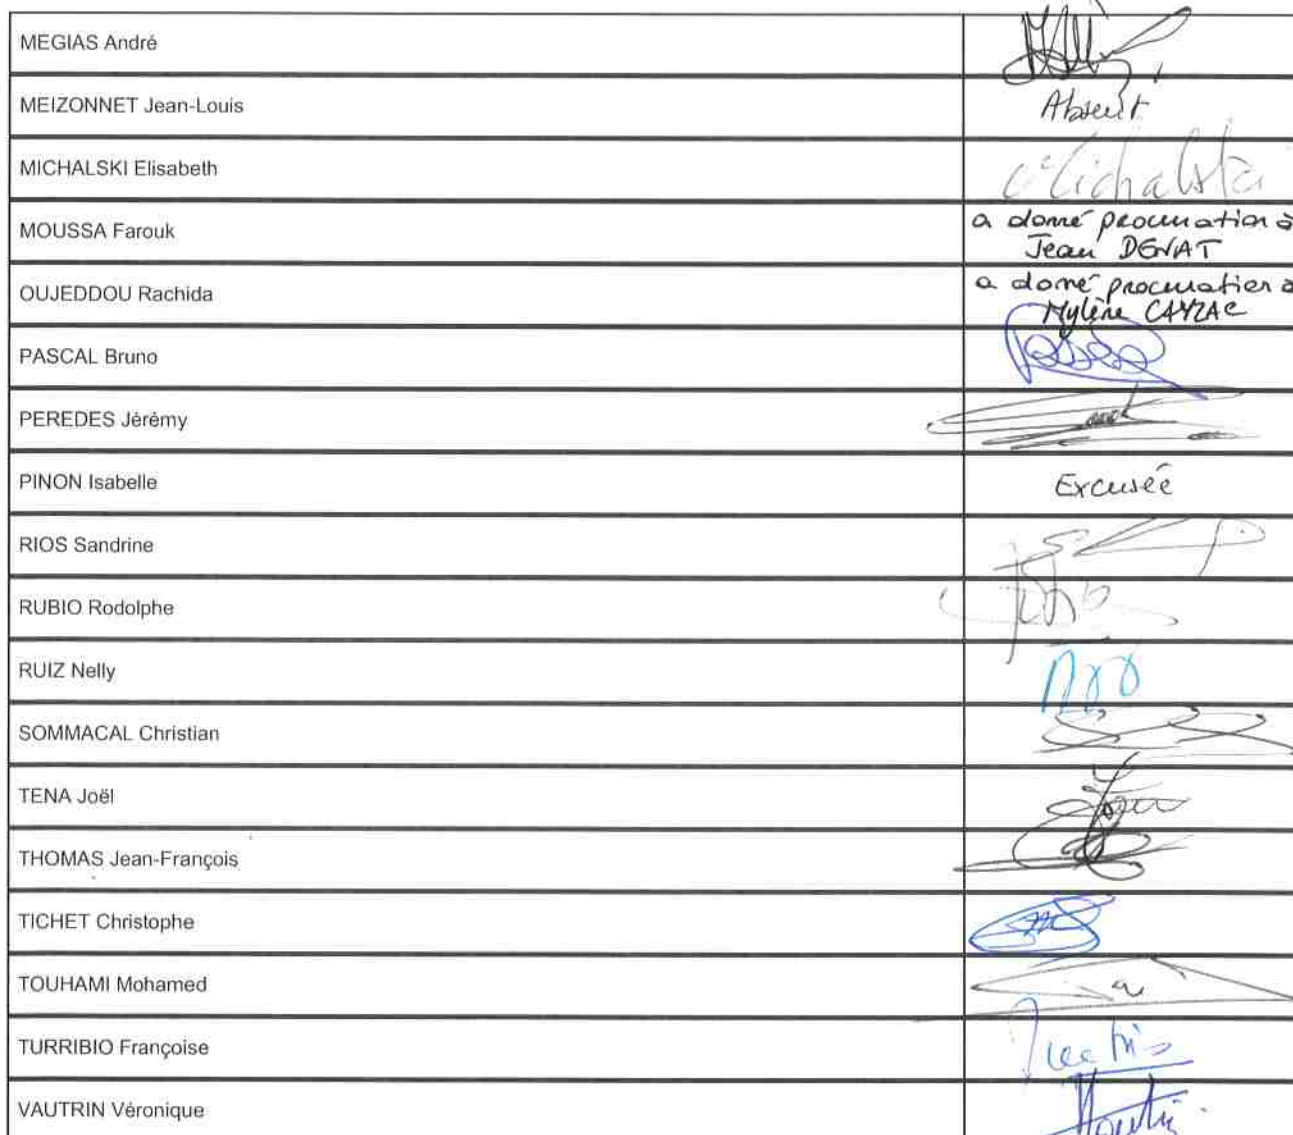 MEGIAS André
MEIZONNET Jean-Louis
Absent
MICHALSKI Elisabeth
Michalski
MOUSSA Farouk
a donné procuration à
Jean DENAT
OUJEDDOU Rachida
a donné procuration à
Mylène CAYZAC
PASCAL Bruno
PEREDES Jérémy
PINON Isabelle
Excusée
RIOS Sandrine
RUBIO Rodolphe
RUIZ Nelly
SOMMACAL Christian
TENA Joël
THOMAS Jean-François
TICHET Christophe
TOUHAMI Mohamed
TURRIBIO Françoise
VAUTRIN Véronique